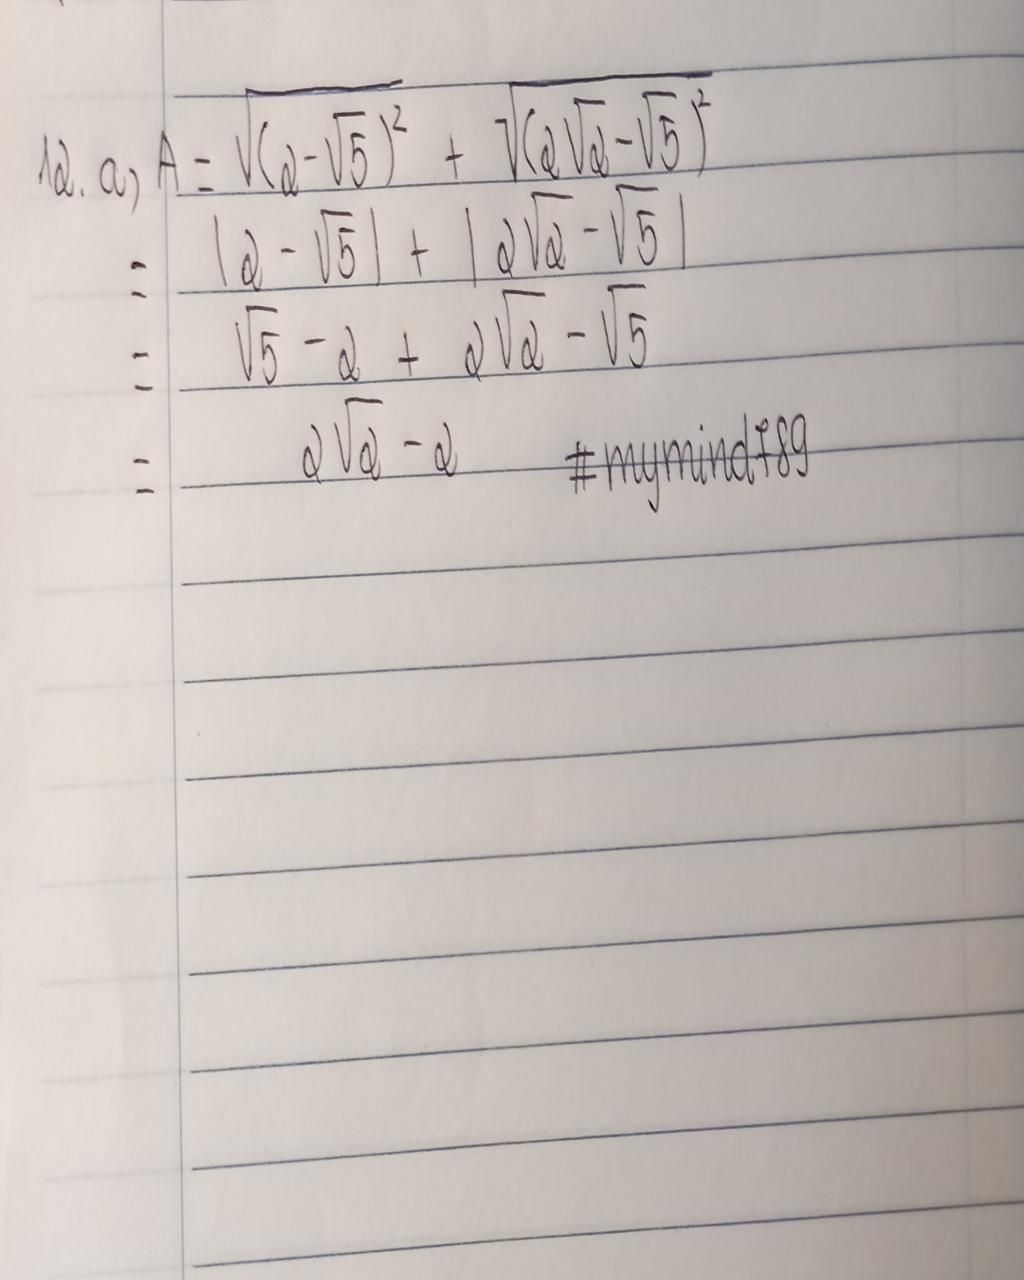 12. a, A = √(2-√5)² + √(2√2-√5)²
= |2 - √5| + |2√2 - √5|
= √5 - 2 + 2√2 - √5
= 2√2 - 2 #mymind789